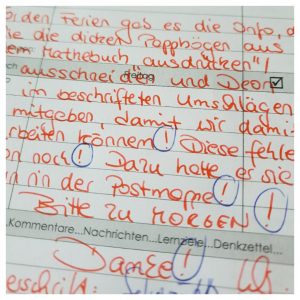 den Ferien gab es die Info, d
ie die dicken Pappbögen aus
em Mathebuch ausdrücken"!
ausschneiden und Deon
im beschrifteten Umschlägen
mitgeben, damit wir dami
arbeiten können! Diese fehle
en noch! Dazu hatte er sie
in der Postmappe!
Bitte zu MORGEN!
...Kommentare...Nachrichten...Lernziele...Denkzettel...
Danke!
erschrift: